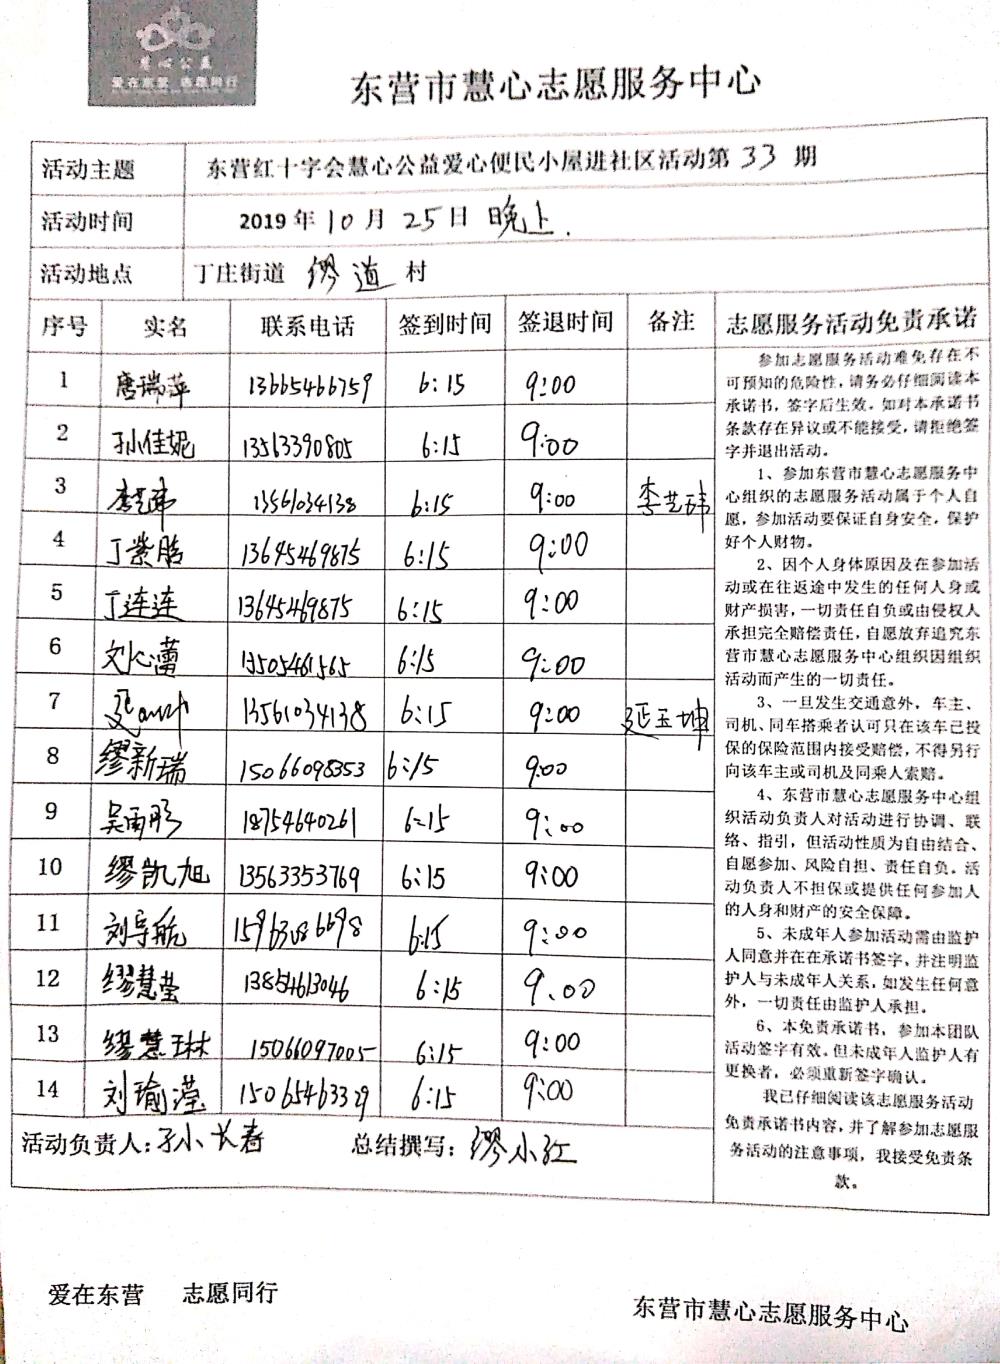 慧心公益
爱在东营 志愿同行
东营市慧心志愿服务中心
活动主题 东营红十字会慧心公益爱心便民小屋进社区活动第 33 期
活动时间 2019 年 10 月 25 日 晚上.
活动地点 丁庄街道 缪道 村
序号 实名 联系电话 签到时间 签退时间 备注
1 唐瑞萍 13665466759 6:15 9:00
2 孙佳妮 13563390805 6:15 9:00
3 李艺玮 13561034138 6:15 9:00 李艺玮
4 丁紫皓 13645469875 6:15 9:00
5 丁连连 13645469875 6:15 9:00
6 刘心蕾 13505461565 6:15 9:00
7 13561034138 6:15 9:00 延玉坤
8 缪新瑞 15066098353 6:15 9:00
9 吴雨彤 18754640261 6:15 9:00
10 缪凯旭 13563353769 6:15 9:00
11 刘宇航 6:15 9:00
12 缪慧莹 13854613046 6:15 9:00
13 缪慧琳 15066097005 6:15 9:00
14 刘瑜滢 15065463329 6:15 9:00
活动负责人:孙小长春 总结撰写:缪小红
志愿服务活动免责承诺
参加志愿服务活动难免存在不
可预知的危险性,请务必仔细阅读本
承诺书,签字后生效。如对本承诺书
条款存在异议或不能接受,请拒绝签
字并退出活动。
1、参加东营市慧心志愿服务中
心组织的志愿服务活动属于个人自
愿,参加活动要保证自身安全,保护
好个人财物。
2、因个人身体原因及在参加活
动或在往返途中发生的任何人身或
财产损害,一切责任自负或由侵权人
承担完全赔偿责任,自愿放弃追究东
营市慧心志愿服务中心组织因组织
活动而产生的一切责任。
3、一旦发生交通意外,车主、
司机、同车搭乘者认可只在该车已投
保的保险范围内接受赔偿,不得另行
向该车主或司机及同乘人索赔。
4、东营市慧心志愿服务中心组
织活动负责人对活动进行协调、联
络、指引,但活动性质为自由结合、
自愿参加、风险自担、责任自负。活
动负责人不担保或提供任何参加人
的人身和财产的安全保障。
5、未成年人参加活动需由监护
人同意并在在承诺书签字,并注明监
护人与未成年人关系,如发生任何意
外,一切责任由监护人承担。
6、本免责承诺书,参加本团队
活动签字有效。但未成年人监护人有
更换者,必须重新签字确认。
我已仔细阅读该志愿服务活动
免责承诺书内容,并了解参加志愿服
务活动的注意事项,我接受免责条
款。
爱在东营 志愿同行
东营市慧心志愿服务中心